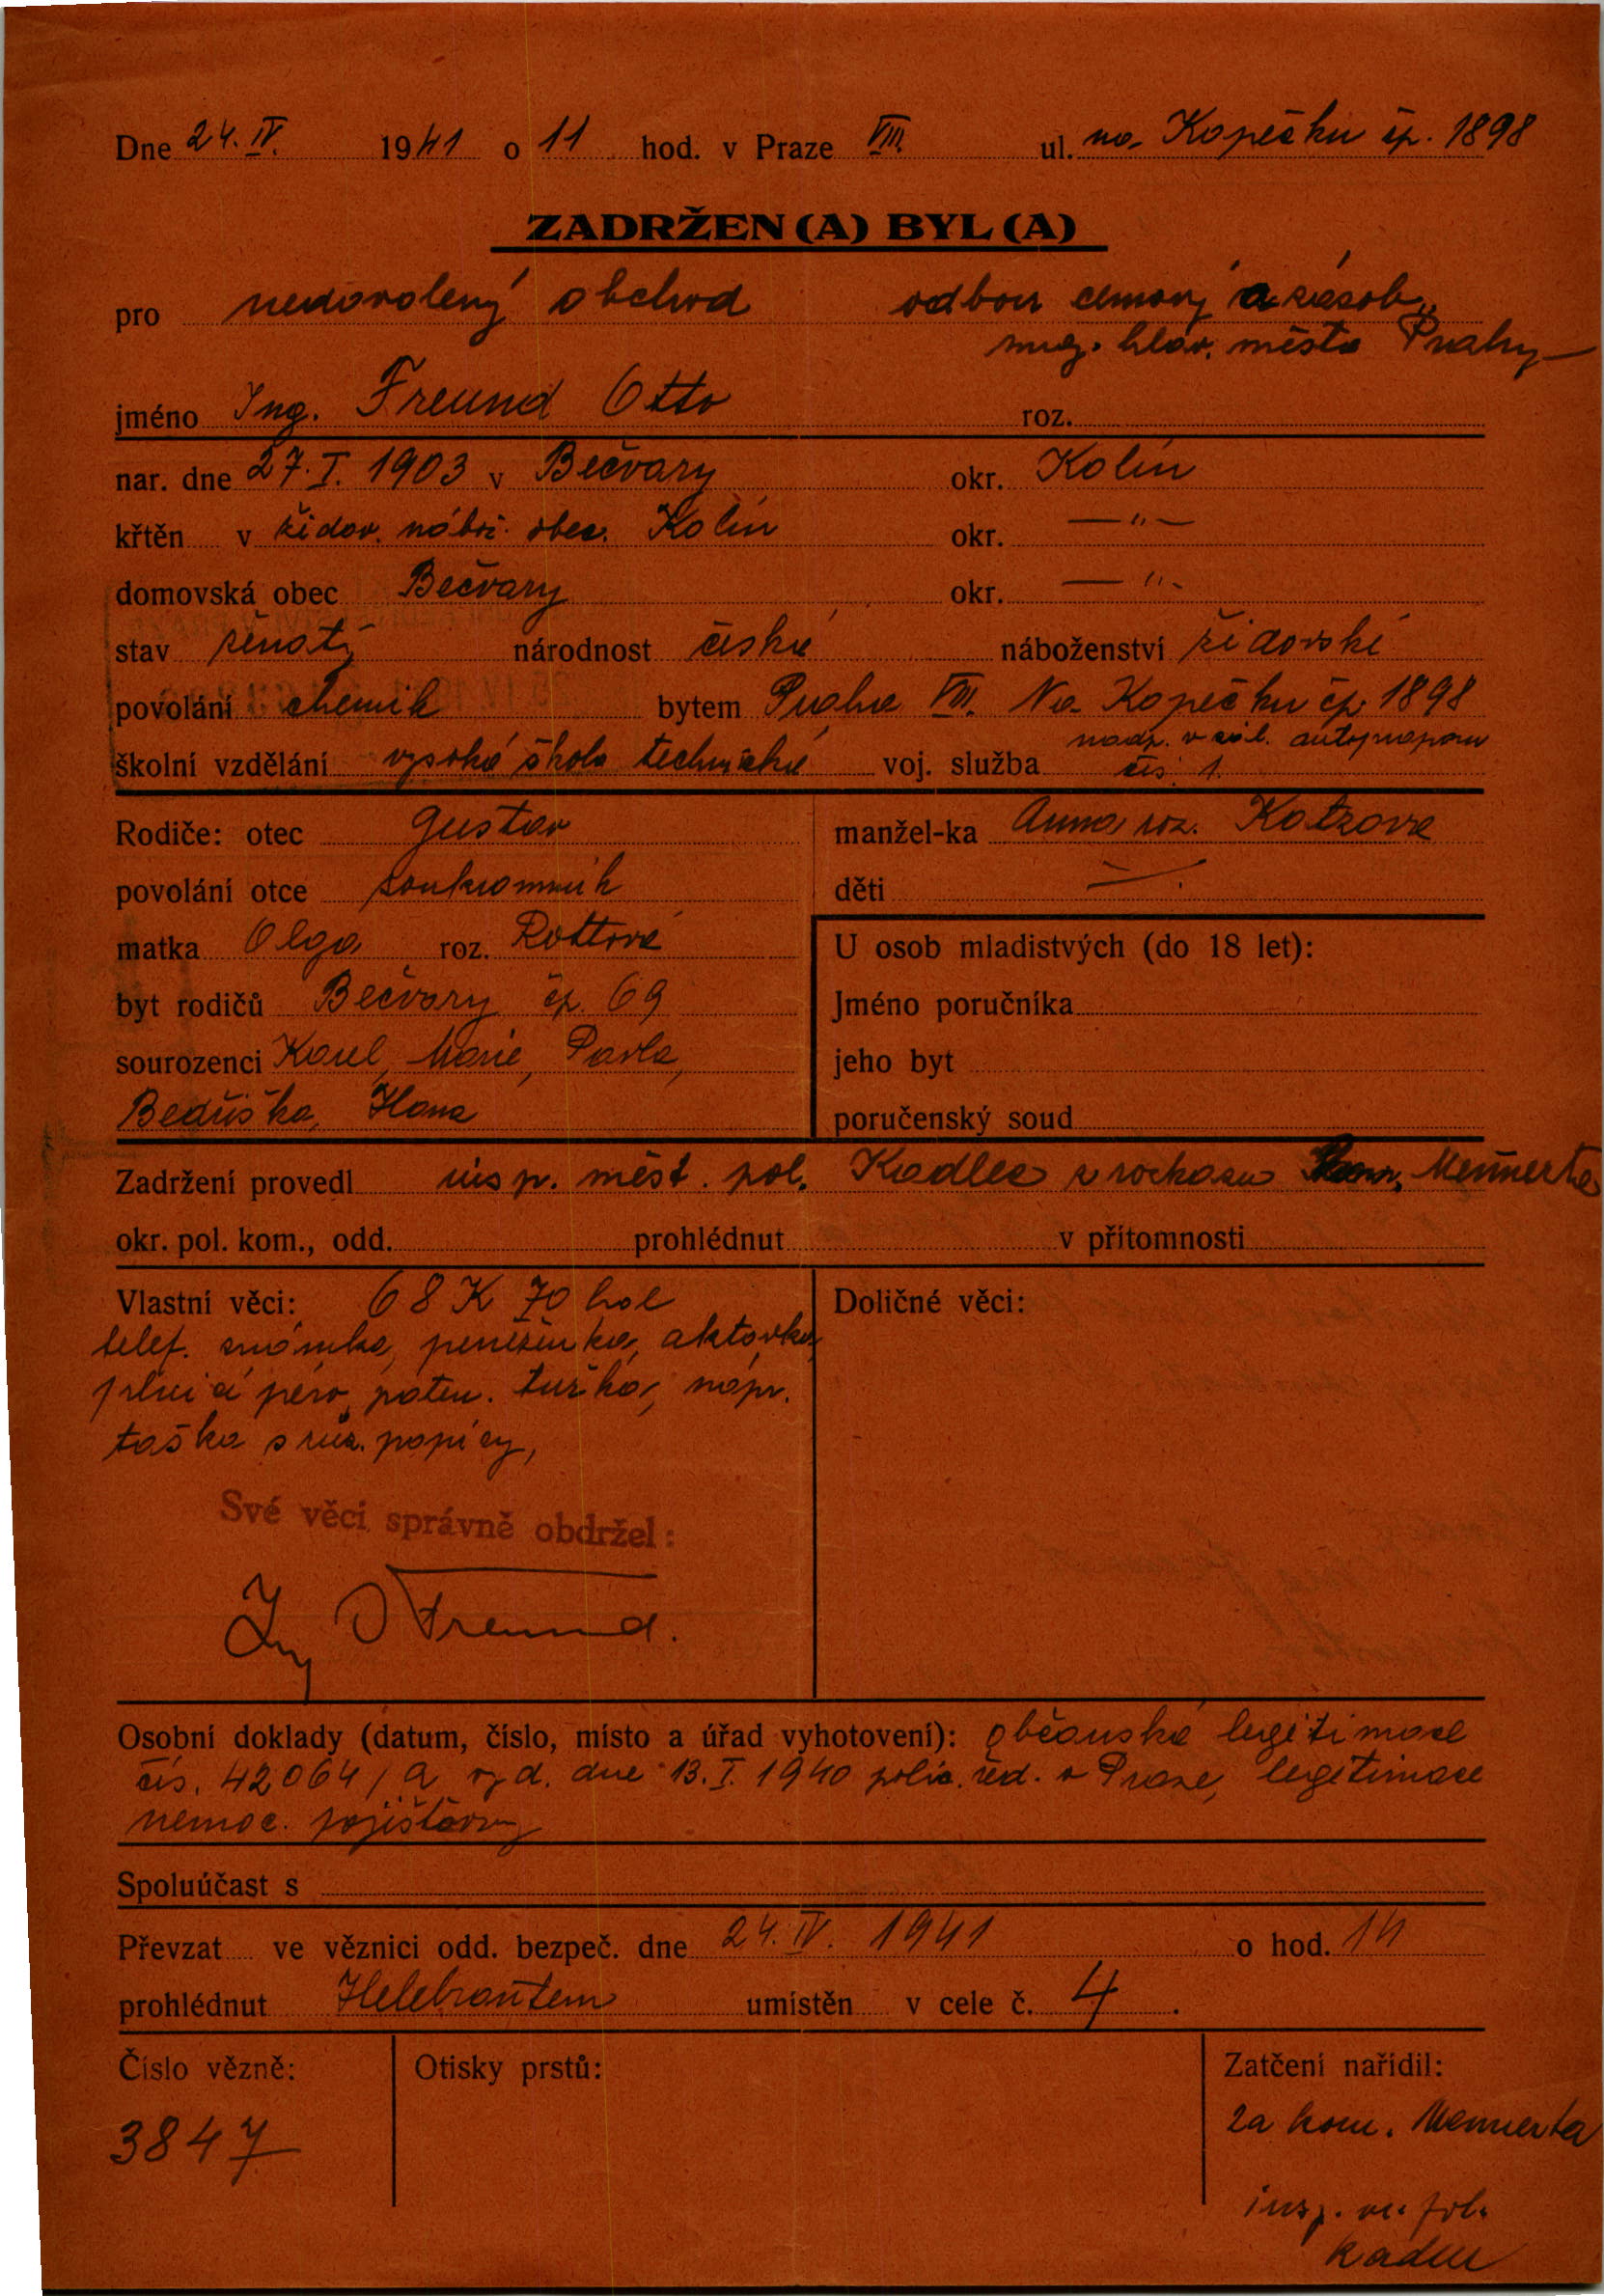 Dne 24. IV. 1941 o 11 hod. v Praze VIII. ul. na Kopečku čp. 1898
ZADRŽEN(A) BYL(A)
pro nedovolený obchod odbor cenový a zásob.
mag. hlav. města Prahy
jméno Ing. Freund Otto roz.
nar. dne 27. I. 1903 v Bečvary okr. Kolín
křtěn v židov. nábož. obec. Kolín okr. — " —
domovská obec Bečvary okr. — " -
stav ženatý národnost česká náboženství židovské
povolání chemik bytem Praha VIII. Na Kopečku čp. 1898
školní vzdělání vysoká škola technická voj. služba
čís. 1.
Rodiče: otec Gustav manžel-ka Anna roz. Katzova
povolání otce soukromník děti —
matka Olga roz. Rottová U osob mladistvých (do 18 let):
byt rodičů Bečvary čp. 69 Jméno poručníka
sourozenci Karel, Marie, Pavla, jeho byt
Bedřiška, Hana poručenský soud
Zadržení provedl insp. měst. pol. Kadlec z rozkazu kom. Mennerta
okr. pol. kom., odd. prohlédnut v přítomnosti
Vlastní věci: 68 K 70 hal Doličné věci:
telef. známka, peněženka, aktovka,
plnicí péro, paten. tužka, nápr.
taška s růz. papíry,
Své věci správně obdržel:
Ing O Freund.
Osobní doklady (datum, číslo, místo a úřad vyhotovení): občanská legitimace
čís. 42064/a vyd. dne 13. I. 1940 polic. řed. v Praze, legitimace
nemoc. pojišťovny
Spoluúčast s
Převzat ve věznici odd. bezpeč. dne 24. IV. 1941 o hod. 14
prohlédnut Helebrantem umístěn v cele č. 4.
Číslo vězně: Otisky prstů: Zatčení nařídil:
3847 za kom. Mennerta
insp. m. pol.
Kadlec